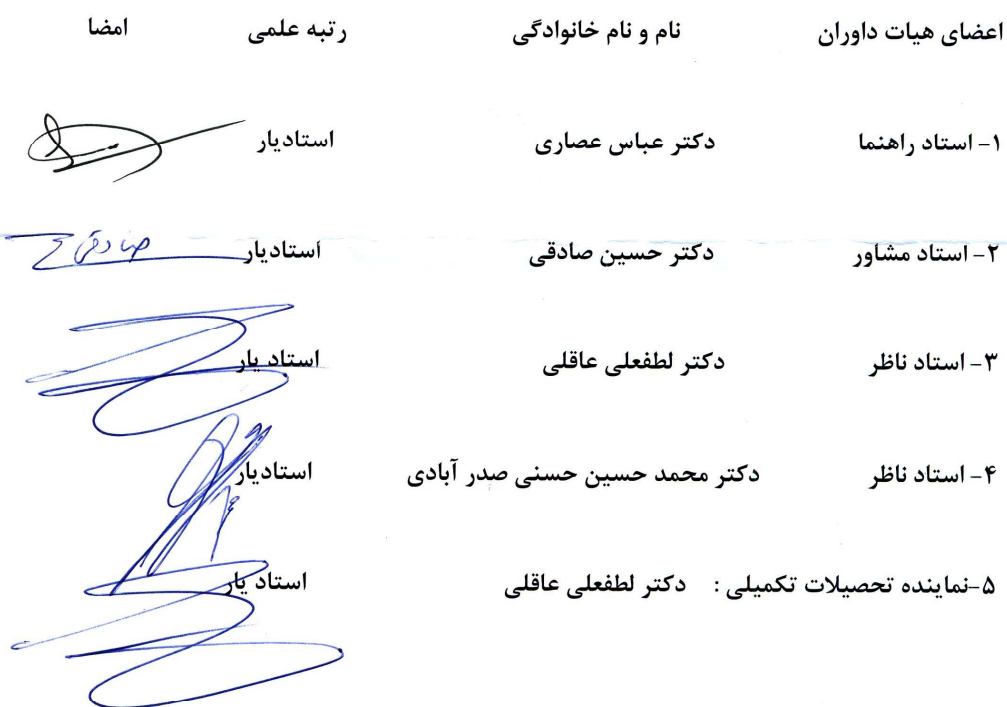 اعضای هیات داوران نام و نام خانوادگی رتبه علمی امضا
۱- استاد راهنما دکتر عباس عصاری استادیار
۲- استاد مشاور دکتر حسین صادقی استادیار صادقی
۳- استاد ناظر دکتر لطفعلی عاقلی استاد یار
۴- استاد ناظر دکتر محمد حسین حسنی صدر آبادی استادیار
۵-نماینده تحصیلات تکمیلی : دکتر لطفعلی عاقلی استاد یار